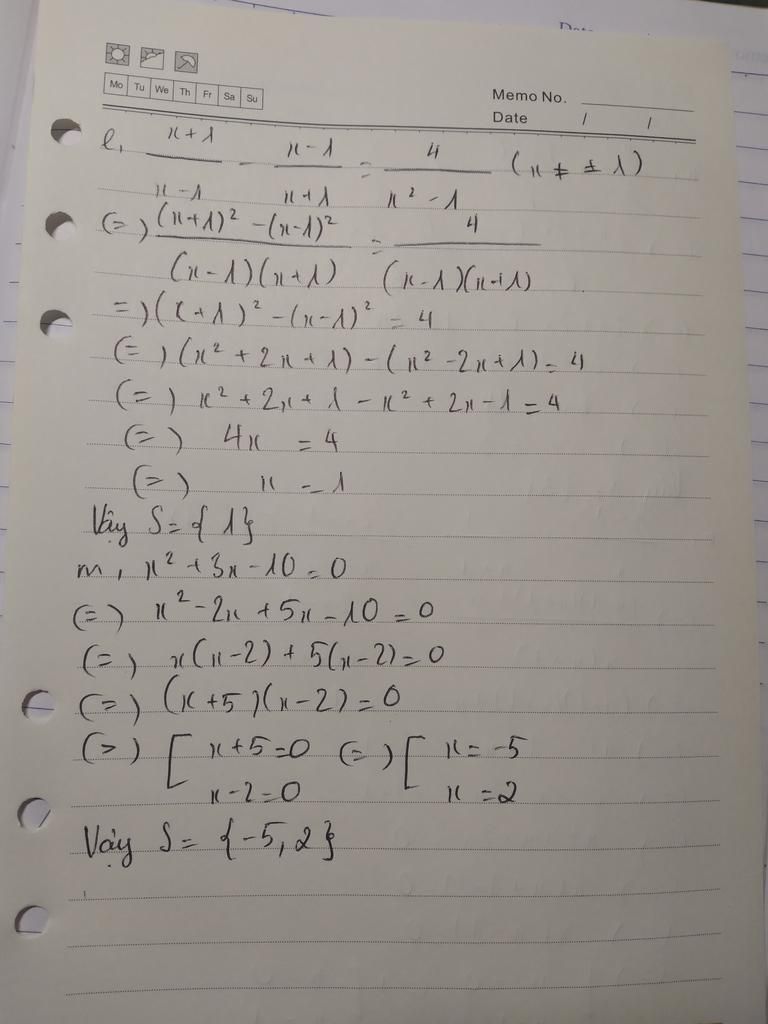 Date
Mo Tu We Th Fr Sa Su
Memo No.
Date / /
l, x+1 / x-1 - x-1 / x+1 = 4 / x² - 1 (x ≠ ± 1)
(=) (x+1)² - (x-1)² / (x-1)(x+1) = 4 / (x-1)(x+1)
=) (x+1)² - (x-1)² = 4
(=) (x² + 2x + 1) - (x² - 2x + 1) = 4
(=) x² + 2x + 1 - x² + 2x - 1 = 4
(=) 4x = 4
(=) x = 1
Vậy S = { 1 }
m, x² + 3x - 10 = 0
(=) x² - 2x + 5x - 10 = 0
(=) x(x-2) + 5(x-2) = 0
(=) (x+5)(x-2) = 0
(=) [ x+5=0 (=) [ x = -5
x-2=0 x = 2
Vậy S = {-5, 2}